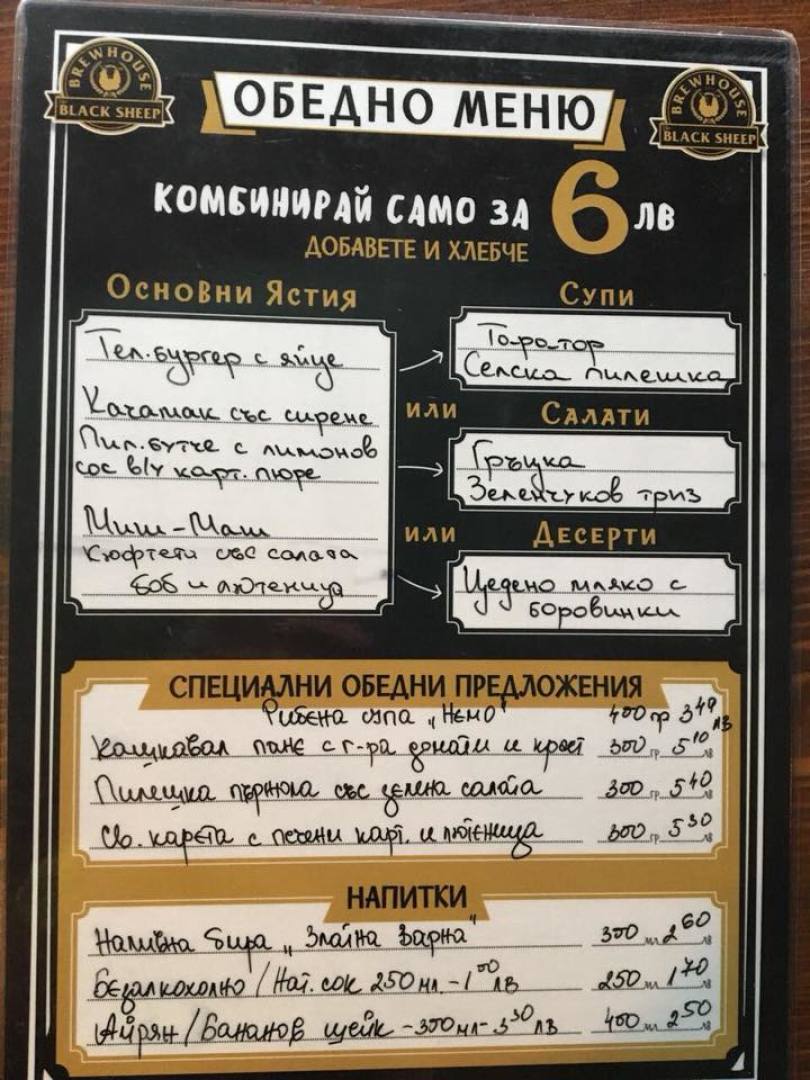 BREWHOUSE
BLACK SHEEP
ОБЕДНО МЕНЮ
BREWHOUSE
BLACK SHEEP
КОМБИНИРАЙ САМО ЗА 6 ЛВ
ДОБАВЕТЕ И ХЛЕБЧЕ
ОСНОВНИ ЯСТИЯ
Тел.бургер с яйце
Качамак със сирене
Пил.бутче с лимонов
сос в/у карт. пюре
Миш-Маш
Кюфтета със салата
боб и лютеница
СУПИ
Таратор
Селска пилешка
ИЛИ САЛАТИ
Гръцка
Зеленчуков триз
ИЛИ ДЕСЕРТИ
Цедено мляко с
боровинки
СПЕЦИАЛНИ ОБЕДНИ ПРЕДЛОЖЕНИЯ
Рибена супа „Немо" 400 гр 3 49 лв
Кашкавал пане с г-ра домати и крост 300 гр. 5 10 лв
Пилешка пържола със зелена салата 300 гр. 5 40 лв
Св. карета с печени карт. и лютеница 300 гр. 5 30 лв
НАПИТКИ
Наливна бира „Златна Варна" 300 мл 2 60 лв
Безалкохолно / Нат. сок 250 мл. - 1 00 лв 250 мл 1 70 лв
Айрян / Бананов шейк - 300 мл - 3 30 лв 400 мл 2 50 лв